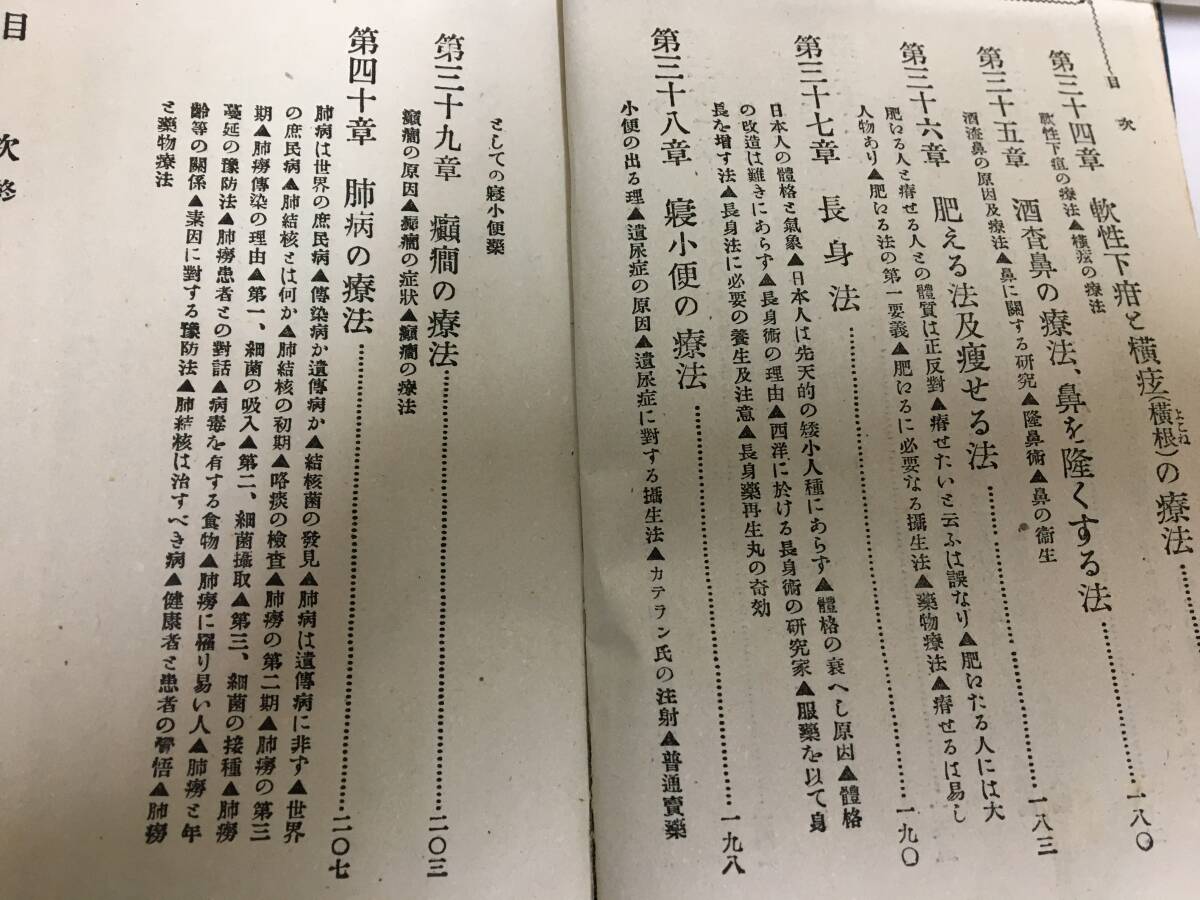 目次
第三十四章 軟性下疳と橫痃(橫根)の療法……一八〇
よこね
軟性下疳の療法▲橫痃の療法
第三十五章 酒査鼻の療法、鼻を隆くする法……一八三
酒渣鼻の原因及療法▲鼻に關する硏究▲隆鼻術▲鼻の衞生
第三十六章 肥える法及痩せる法……一九〇
肥ゐる人と瘠せる人との體質は正反對▲瘠せたいと云ふは誤なり▲肥ゐたる人には大
人物あり▲肥ゐる法の第一要義▲肥ゐるに必要なる攝生法▲藥物療法▲瘠せるは易し
第三十七章 長身法……一九八
日本人の體格と氣象▲日本人は先天的の矮小人種にあらず▲體格の衰へし原因▲體格
の改造は難きにあらず▲長身術の理由▲西洋に於ける長身術の硏究家▲服藥を以て身
長を增す法▲長身法に必要の養生及注意▲長身藥再生丸の奇効
第三十八章 寢小便の療法……
小便の出る理▲遺尿症の原因▲遺尿症に對する攝生法▲カテラン氏の注射▲普通賣藥
としての寢小便藥
第三十九章 癲癇の療法……二〇三
癲癇の原因▲癲癇の症狀▲癲癇の療法
第四十章 肺病の療法……二〇七
肺病は世界の庶民病▲傳染病か遺傳病か▲結核菌の發見▲肺病は遺傳病に非ず▲世界
の庶民病▲肺結核とは何か▲肺結核の初期▲咯痰の檢査▲肺癆の第二期▲肺癆の第三
期▲肺癆傳染の理由▲第一、細菌の吸入▲第二、細菌攝取▲第三、細菌の接種▲肺癆
蔓延の豫防法▲肺癆患者との對話▲病毒を有する食物▲肺癆に罹り易い人▲肺癆と年
齡等の關係▲素因に對する豫防法▲肺結核は治すべき病▲健康者と患者の覺悟▲肺癆
と藥物療法
目次終